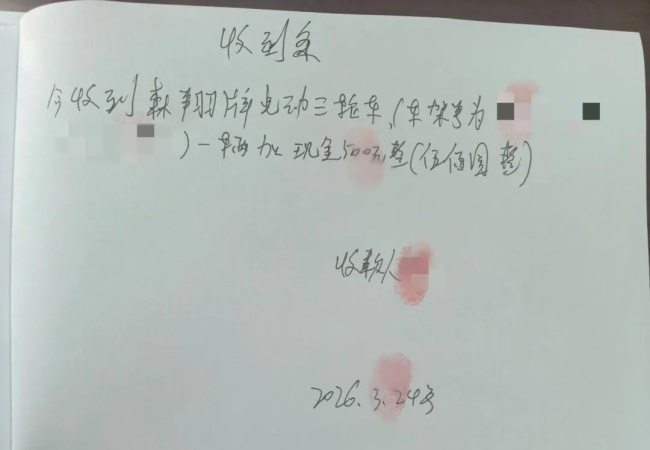 收到条
今收到森翔牌电动三轮车,(车架号为
)一辆加现金500元整(伍佰圆整)
收款人
2026.3.24号